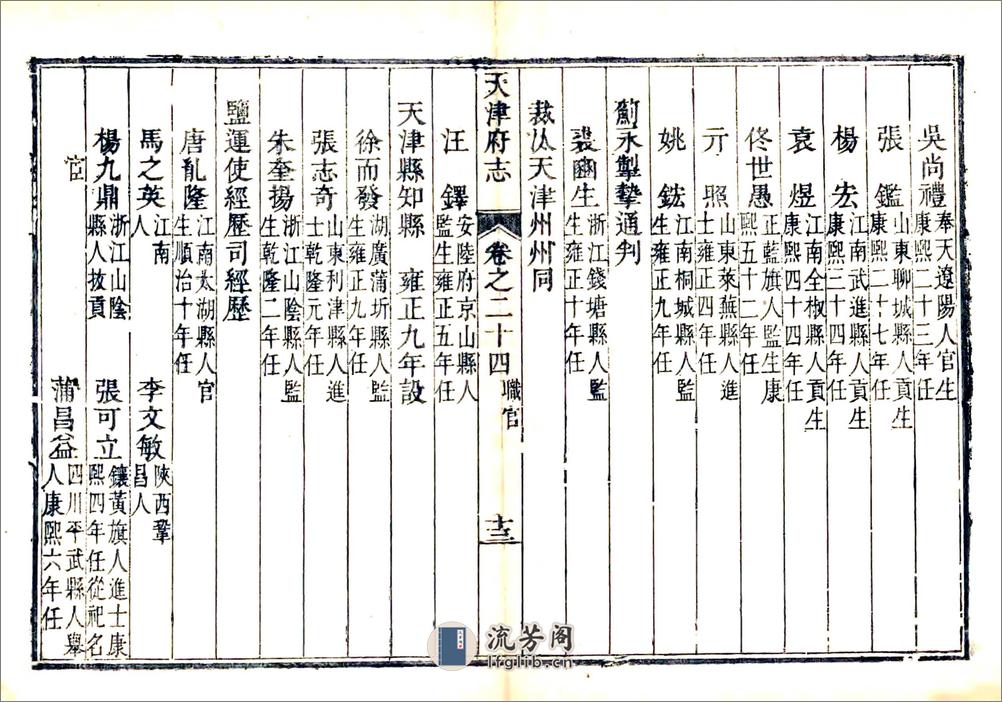 吳尚禮 奉天遼陽人官生康熙二十三年任
張鑑 山東聊城縣人貢生康熙二十七年任
楊宏 江南武進縣人貢生康熙三十四年任
袁煜 江南全椒縣人貢生康熙四十四年任
佟世愚 正藍旗人監生康熙五十二年任
亓照 山東萊蕪縣人進士雍正四年任
姚鋐 江南桐城縣人監生雍正九年任
薊永掣摯通判
裘𢎞生 浙江錢塘縣人監生雍正十年任
裁汰天津州州同
天津府志 卷之二十四 職官 十三
汪鐸 安陸府京山縣人監生雍正五年任
天津縣知縣 雍正九年設
徐而發 湖廣蒲圻縣人監生雍正九年任
張志奇 山東利津縣人進士乾隆元年任
朱奎揚 浙江山陰縣人監生乾隆二年任
鹽運使經歷司經歷
唐胤隆 江南太湖縣人官生順治十年任
馬之英 江南人 李文敏 陝西鞏昌人
楊九鼎 浙江山陰縣人拔貢 張可立 鑲黃旗人進士康熙四年任從祀名
宦 蒲昌益 四川平武縣人舉人康熙六年任
流芳阁
lfglib.cn